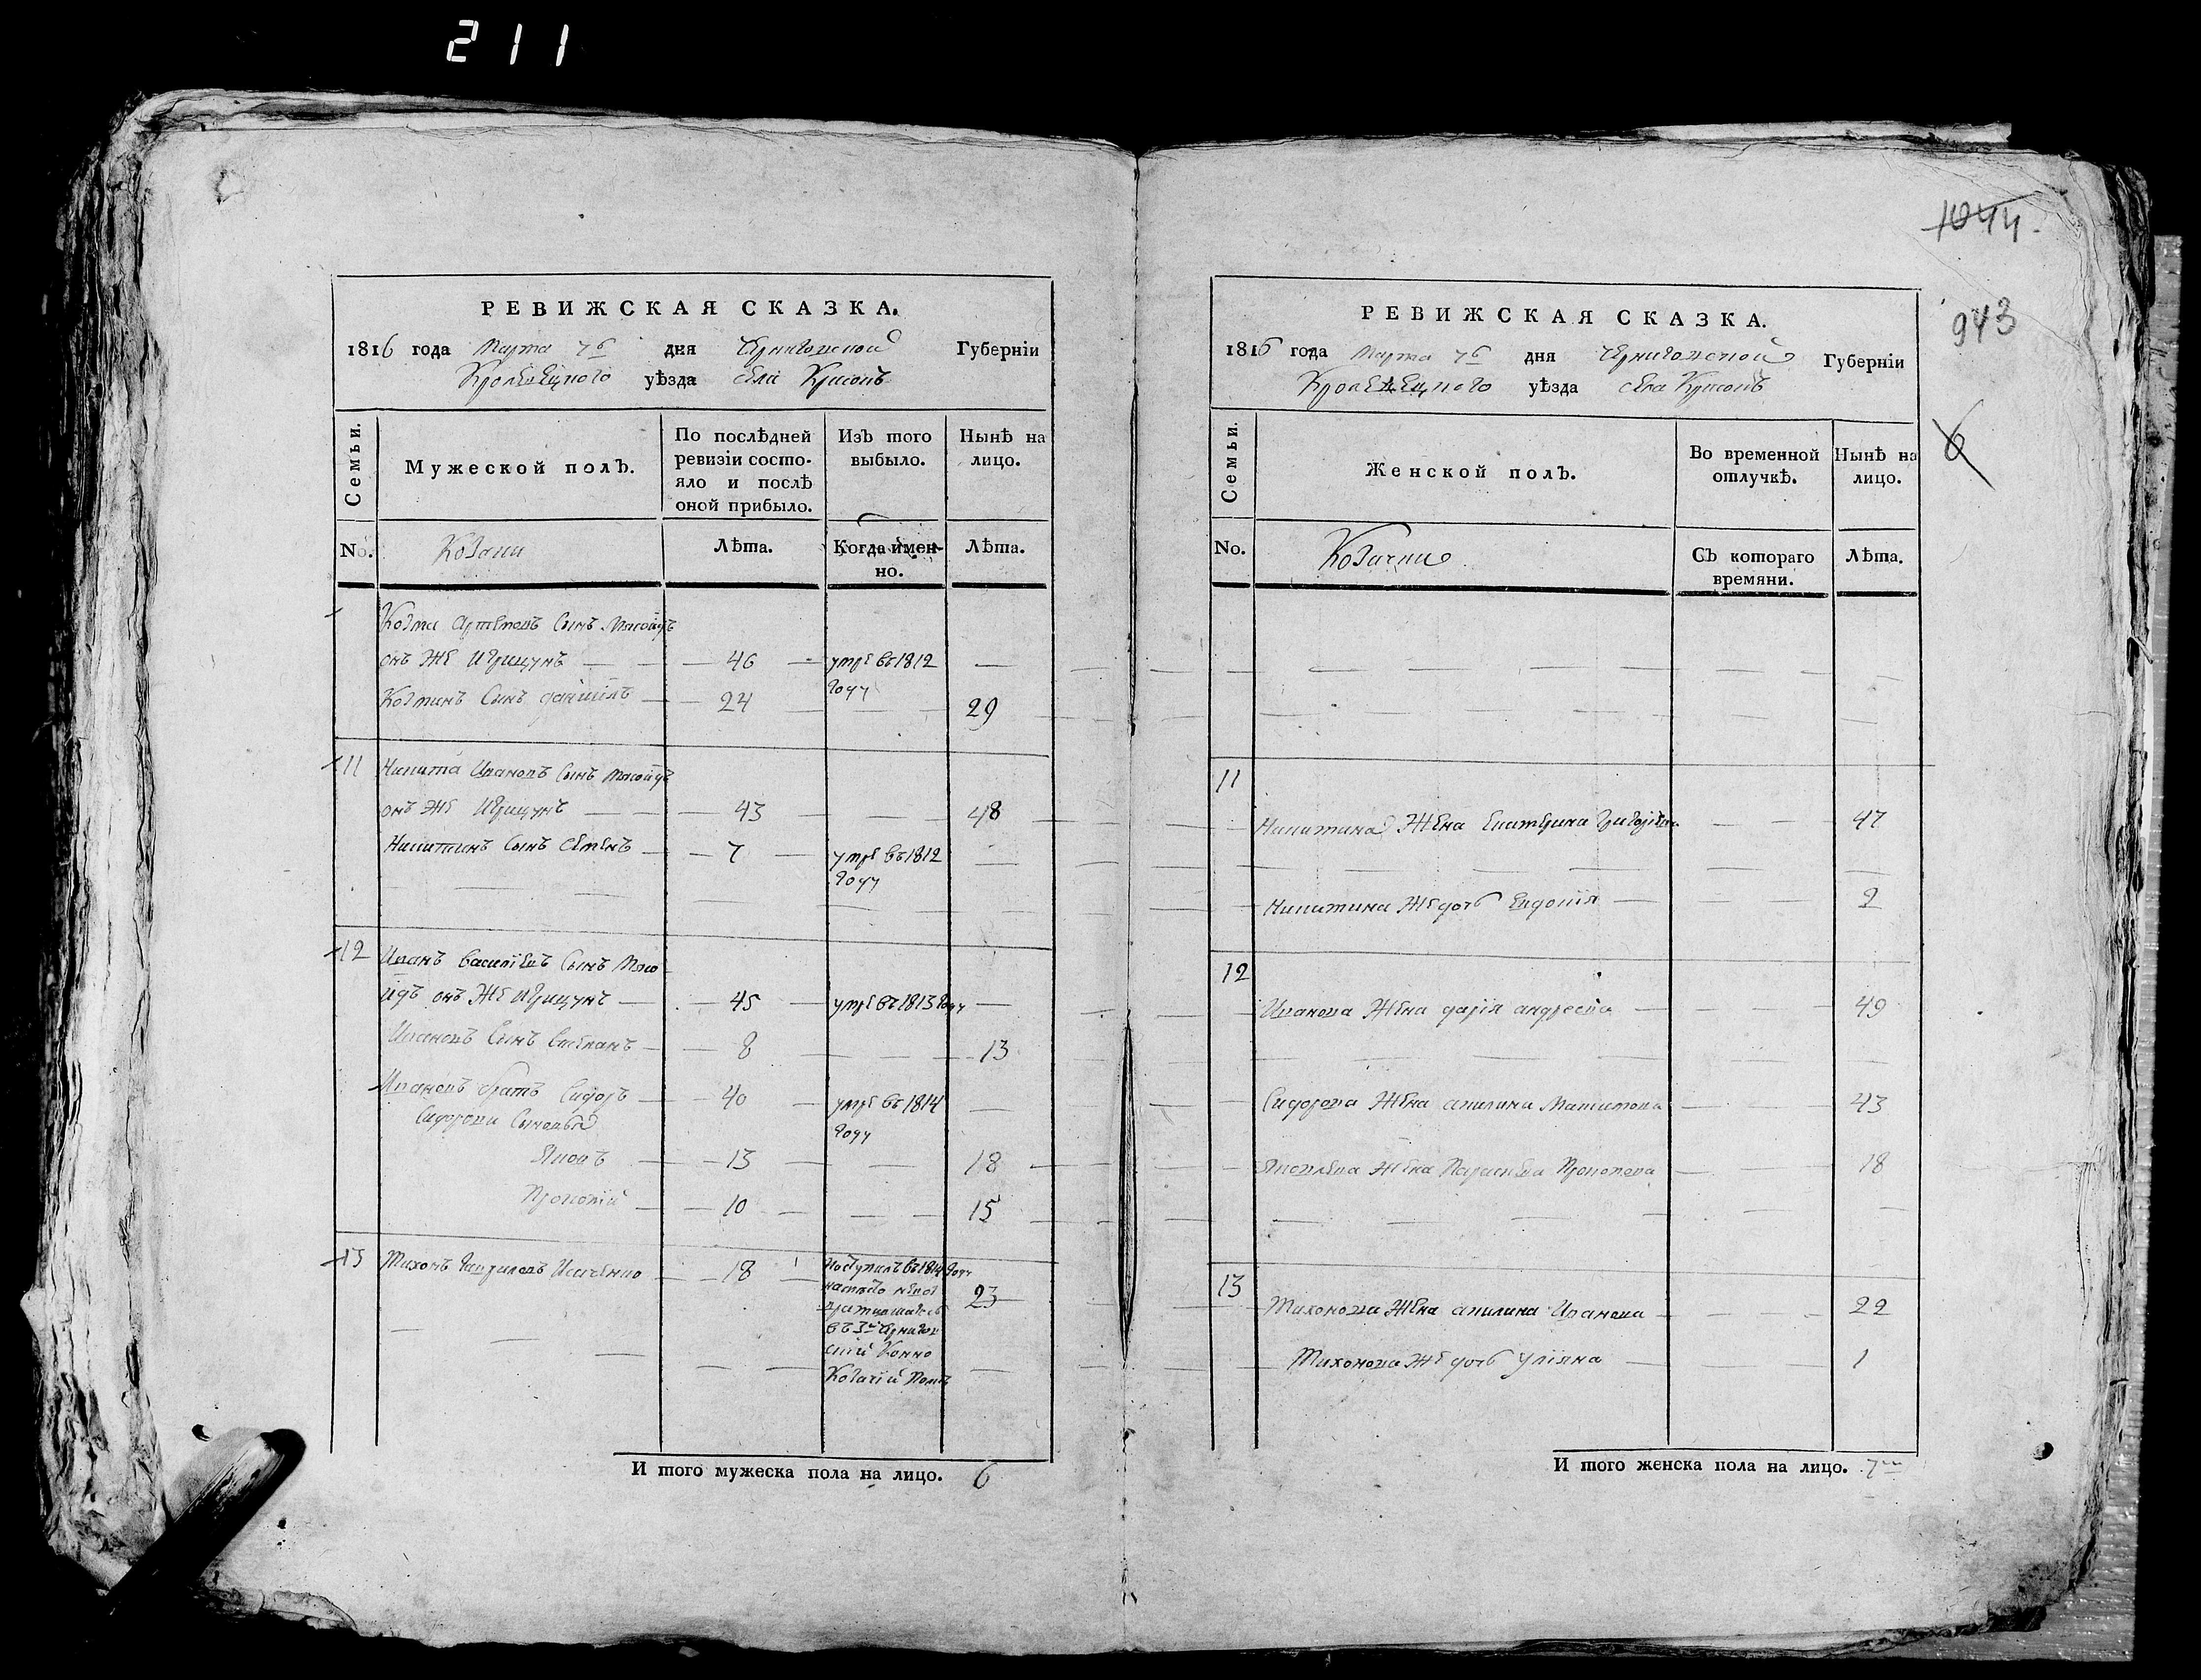 211
РЕВИЖСКАЯ СКАЗКА.
1816 года Марта 7б дня Черниговской Губерніи
Кролевецкого уѣзда села
Семьи.
Мужеской полъ.
По послѣдней ревизіи состояло и послѣ оной прибыло.
Изъ того выбыло.
Нынѣ на лицо.
No.
Козаки
Лѣта.
Когда именно.
Лѣта.
Козма Артемовъ Сынъ Мясоидъ
онъ Же Игрицунъ 46 умре въ 1812 году
Козминъ Сынъ Даниилъ 24 29
11 Никита Ивановъ Сынъ Мясоидъ
онъ Же Игрицунъ 43 48
Никитинъ Сынъ Семенъ 7 умре въ 1812 году
12 Иванъ Василіевъ Сынъ Мясо
идъ онъ Же Игрицунъ 45 умре въ 1813 году
Ивановъ Сынъ Степанъ 8 13
Ивановъ братъ Сидоръ 40 умре въ 1814 году
Сидоровы Сыновья
Яковъ 13 18
Прокопій 10 15
13 Тихонъ Гавриловъ Исаченко 18 Поступилъ въ 1814 году 23
въ 3й Чернигов
скій Конно
Козачій Полкъ
И того мужеска пола на лицо. 6
1044
943
6
РЕВИЖСКАЯ СКАЗКА.
1816 года Марта 7б дня Черниговской Губерніи
Кролевецкого уѣзда села
Семьи.
Женской полъ.
Во временной отлучкѣ.
Нынѣ на лицо.
No.
Козачки
Съ котораго времяни.
Лѣта.
11
Никитина Жена Екатерина Григоріева 47
Никитина Же дочь Евдокія 2
12
Иванова Жена Дарія Андреева 49
Сидорова Жена Акилина Максимова 43
Яковлева Жена Параскева Прокопова 18
13
Тихонова Жена Акилина Иванова 22
Тихонова Же дочь Уліяна 1
И того женска пола на лицо. 7